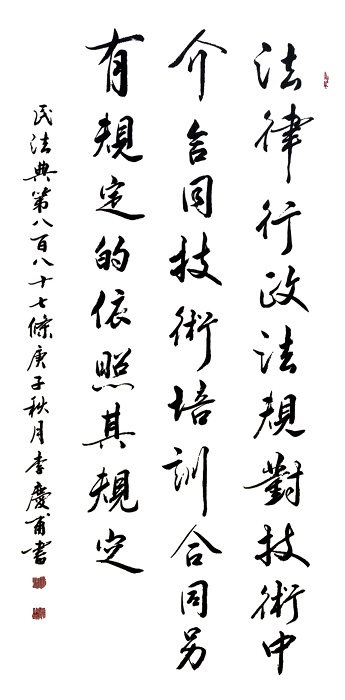 法律行政法規對技術中
介合同技術培訓合同另
有規定的依照其規定
民法典第八百八十七條庚子秋月李慶甫書